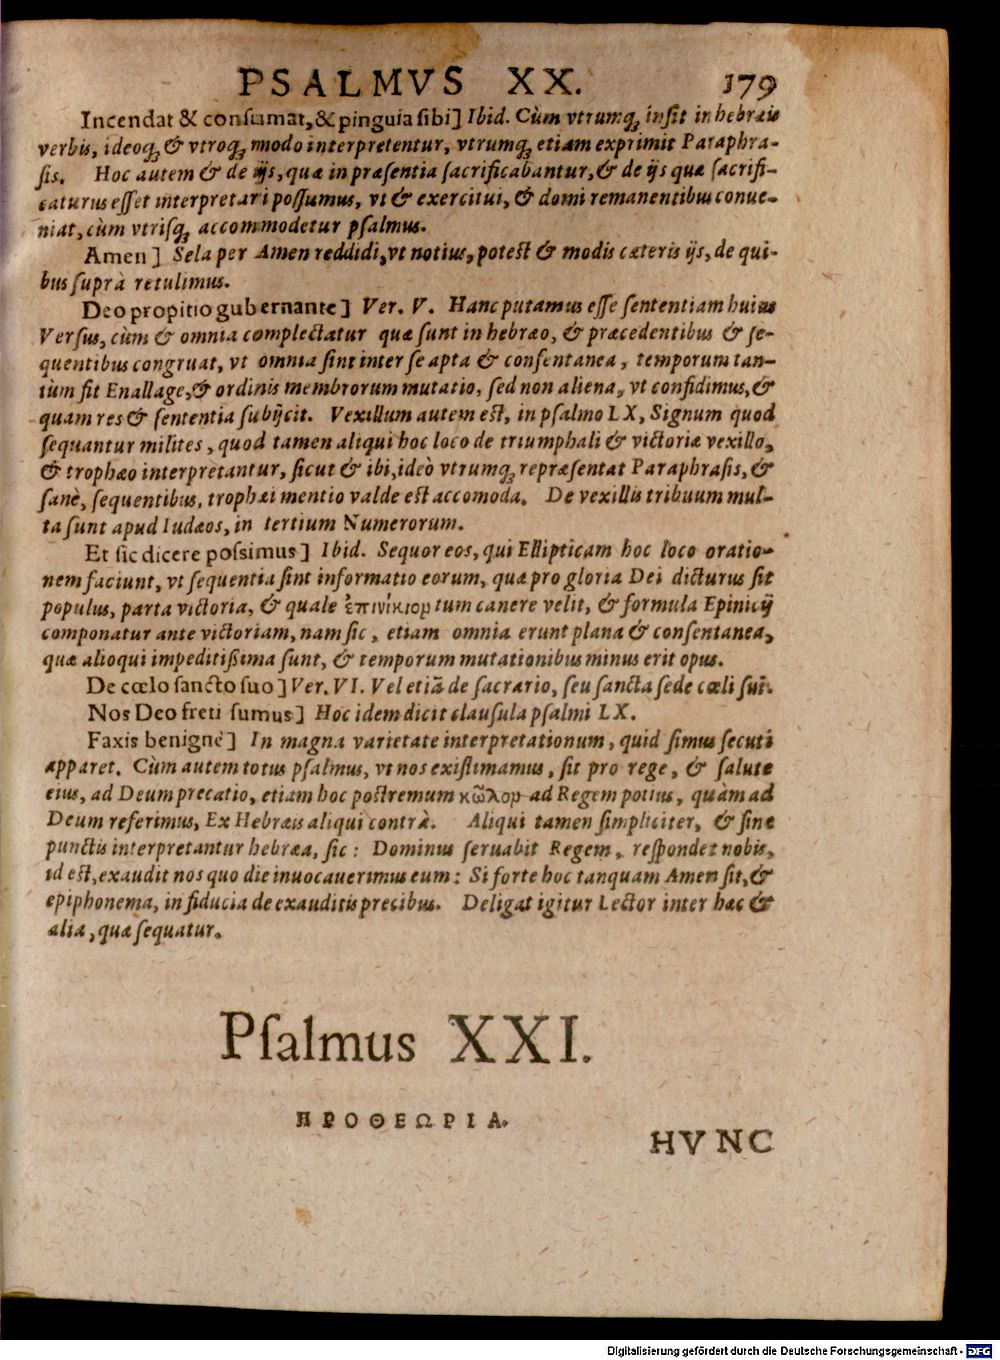 PSALMVS XX. 179
Incendat & consumat, & pinguia sibi] Ibid. Cùm vtrumq; insit in hebræis
verbis, ideoq; & vtroq; modo interpretentur, vtrumq; etiam exprimit Paraphra-
sis. Hoc autem & de ijs, quæ in præsentia sacrificabantur, & de ijs quæ sacrifi-
caturus esset interpretari possumus, vt & exercitui, & domi remanentibus conue-
niat, cùm vtrisq; accommodetur psalmus.
Amen] Sela per Amen reddidi, vt notius, potest & modis cæteris ijs, de qui-
bus suprà retulimus.
Deo propitio gubernante] Ver. V. Hanc putamus esse sententiam huius
Versus, cùm & omnia complectatur quæ sunt in hebræo, & præcedentibus & se-
quentibus congruat, vt omnia sint inter se apta & consentanea, temporum tan-
tùm fit Enallage, & ordinis membrorum mutatio, sed non aliena, vt confidimus, &
quam res & sententia subijcit. Vexillum autem est, in psalmo LX, Signum quod
sequantur milites, quod tamen aliqui hoc loco de triumphali & victoriæ vexillo,
& trophæo interpretantur, sicut & ibi, ideò vtrumq; repræsentat Paraphrasis, &
sanè, sequentibus, trophæi mentio valde est accomoda. De vexillis tribuum mul-
ta sunt apud Iudæos, in tertium Numerorum.
Et sic dicere possimus] Ibid. Sequor eos, qui Ellipticam hoc loco oratio-
nem faciunt, vt sequentia sint informatio eorum, quæ pro gloria Dei dicturus sit
populus, parta victoria, & quale ἐπινίκιον tum canere velit, & formula Epinicij
componatur ante victoriam, nam sic, etiam omnia erunt plana & consentanea,
quæ alioqui impeditißima sunt, & temporum mutationibus minus erit opus.
De cœlo sancto suo] Ver. VI. Vel etiã de sacrario, seu sancta sede cœli sui.
Nos Deo freti sumus] Hoc idem dicit clausula psalmi LX.
Faxis benignè] In magna varietate interpretationum, quid simus secuti
apparet. Cùm autem totus psalmus, vt nos existimamus, sit pro rege, & salute
eius, ad Deum precatio, etiam hoc postremum κῶλον ad Regem potius, quàm ad
Deum referimus, Ex Hebræis aliqui contrà. Aliqui tamen simpliciter, & sine
punctis interpretantur hebræa, sic: Dominus seruabit Regem, respondet nobis,
id est, exaudit nos quo die inuocauerimus eum: Si forte hoc tanquam Amen sit, &
epiphonema, in fiducia de exauditis precibus. Deligat igitur Lector inter hæc &
alia, quæ sequatur.
Psalmus XXI.
ΠΡΟΘΕΩΡΙΑ.
HVNC
Digitalisierung gefördert durch die Deutsche Forschungsgemeinschaft - DFG